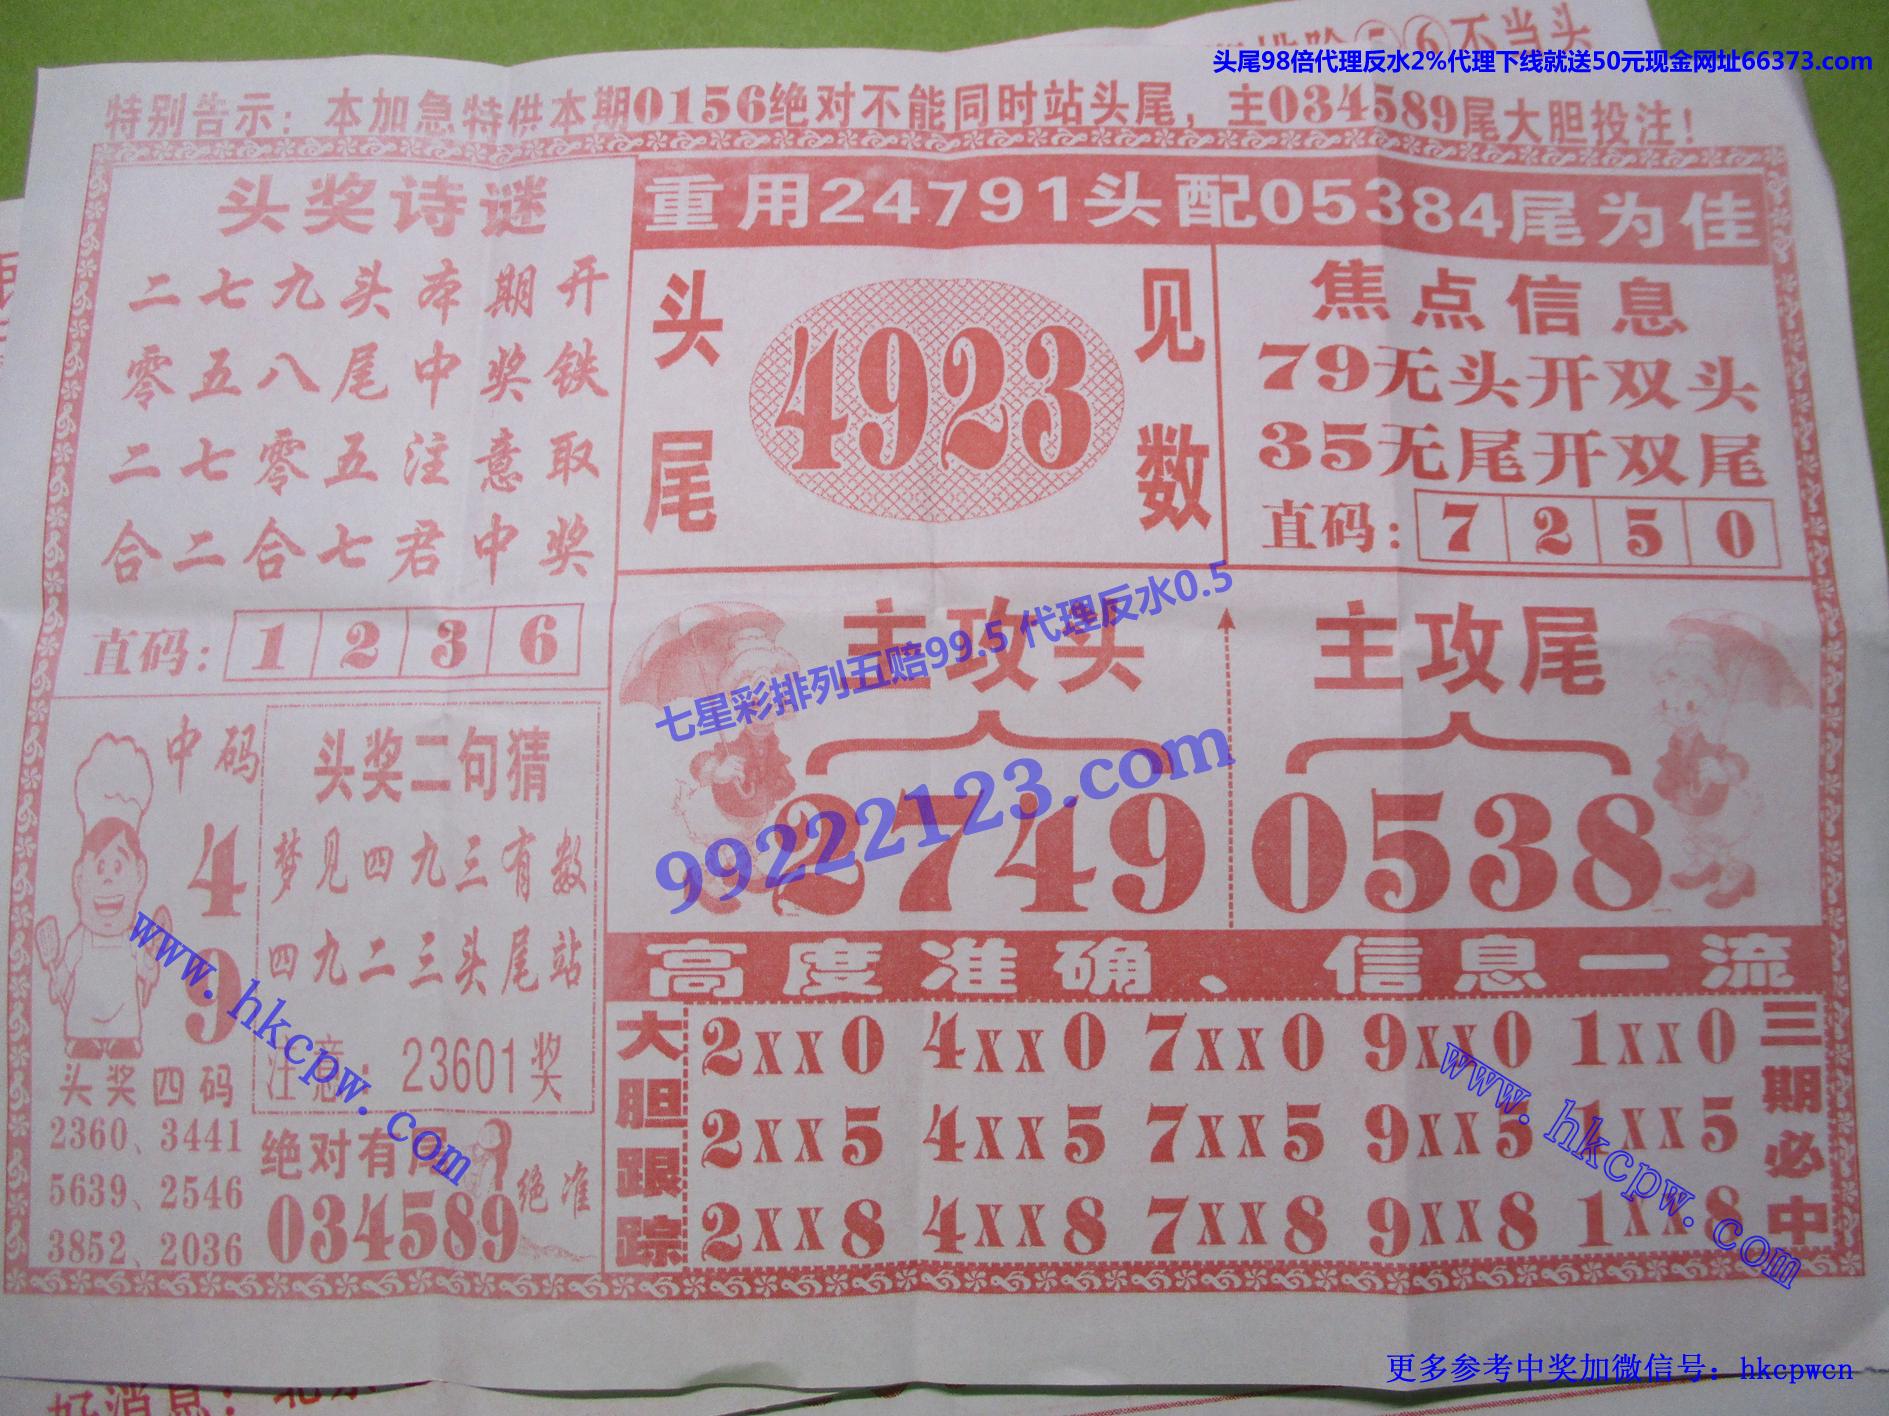 不当头
头尾98倍代理反水2%代理下线就送50元现金网址66373.com
特别告示：本加急特供本期0156绝对不能同时站头尾，主034589尾大胆投注！
头奖诗谜
二七九头本期开
零五八尾中奖铁
二七零五注意取
合二合七君中奖
直码：1 2 3 6
重用24791头配05384尾为佳
头尾
4923
见数
焦点信息
79无头开双头
35无尾开双尾
直码：7 2 5 0
主攻头
2749
主攻尾
0538
七星彩排列五赔99.5 代理反水0.5
99222123.com
中码
4
9
头奖四码
2360、3441
5639、2546
3852、2036
头奖二句猜
梦见四九三有数
四九二三头尾站
注意：23601奖
绝对有尾
034589
绝准
www.hkcpw.com
高度准确、信息一流
大胆跟踪
2xx0 4xx0 7xx0 9xx0 1xx0
2xx5 4xx5 7xx5 9xx5 1xx5
2xx8 4xx8 7xx8 9xx8 1xx8
三期必中
www.hkcpw.com
更多参考中奖加微信号：hkcpwcn
好消息：